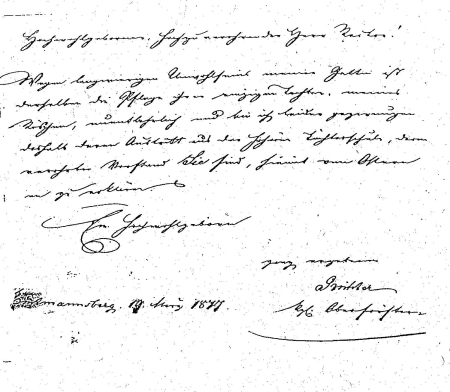 Hochwohlgeborener, Hochzuverehrender Herr Rector!
Wegen langwierigen Unwohlseins meiner Gattin ist
derselben die Pflege ihrer einzigen Tochter, meines
unentbehrlich und bin ich leider gezwungen
deshalb deren Austritt aus der höheren Töchterschule, deren
verehrter Vorstand Sie sind, hiemit von Ostern
an zu erklären
Ew. Hochwohlgeboren
ganz ergebener
kgl. Oberförster
mannsberg, 19. März 1877